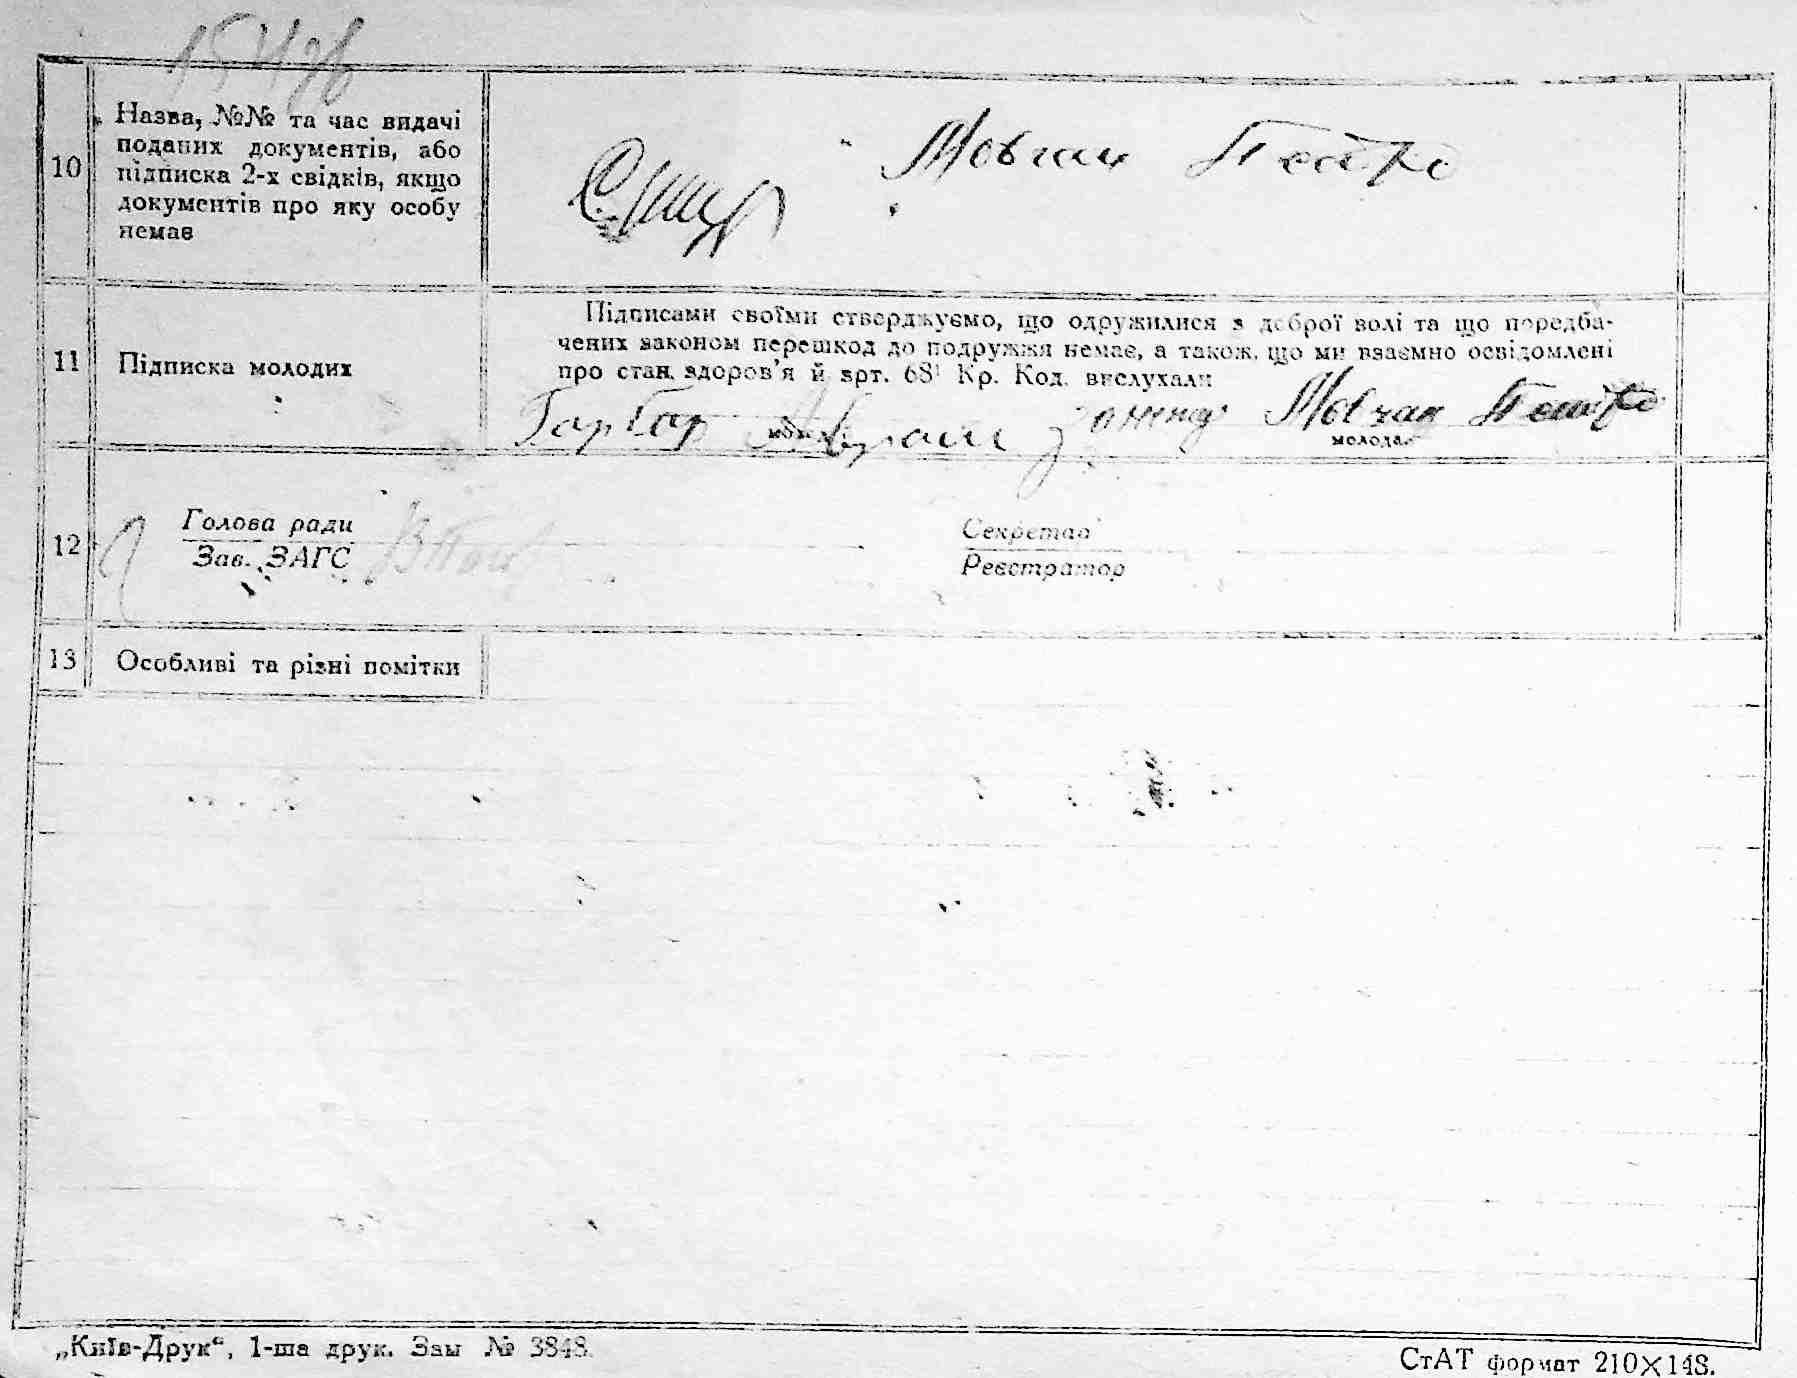 10
Назва, №№ та час видачі
поданих документів, або
підписка 2-х свідків, якщо
документів про яку особу
немає
Мовчан Петро
11
Підписка молодих
Підписами своїми стверджуємо, що одружилися з доброї волі та що передба-
чених законом перешкод до подружжя немає, а також, що ми взаємно освідомлені
про стан здоров'я й арт. 68¹ Кр. Код. вислухали
Гарбар Мовчан Петро
молода
12
Голова ради
Зав. ЗАГС
Секретар
Реєстратор
13
Особливі та різні помітки
„Київ-Друк“, 1-ша друк. Зам № 3848.
СтАТ формат 210×148.